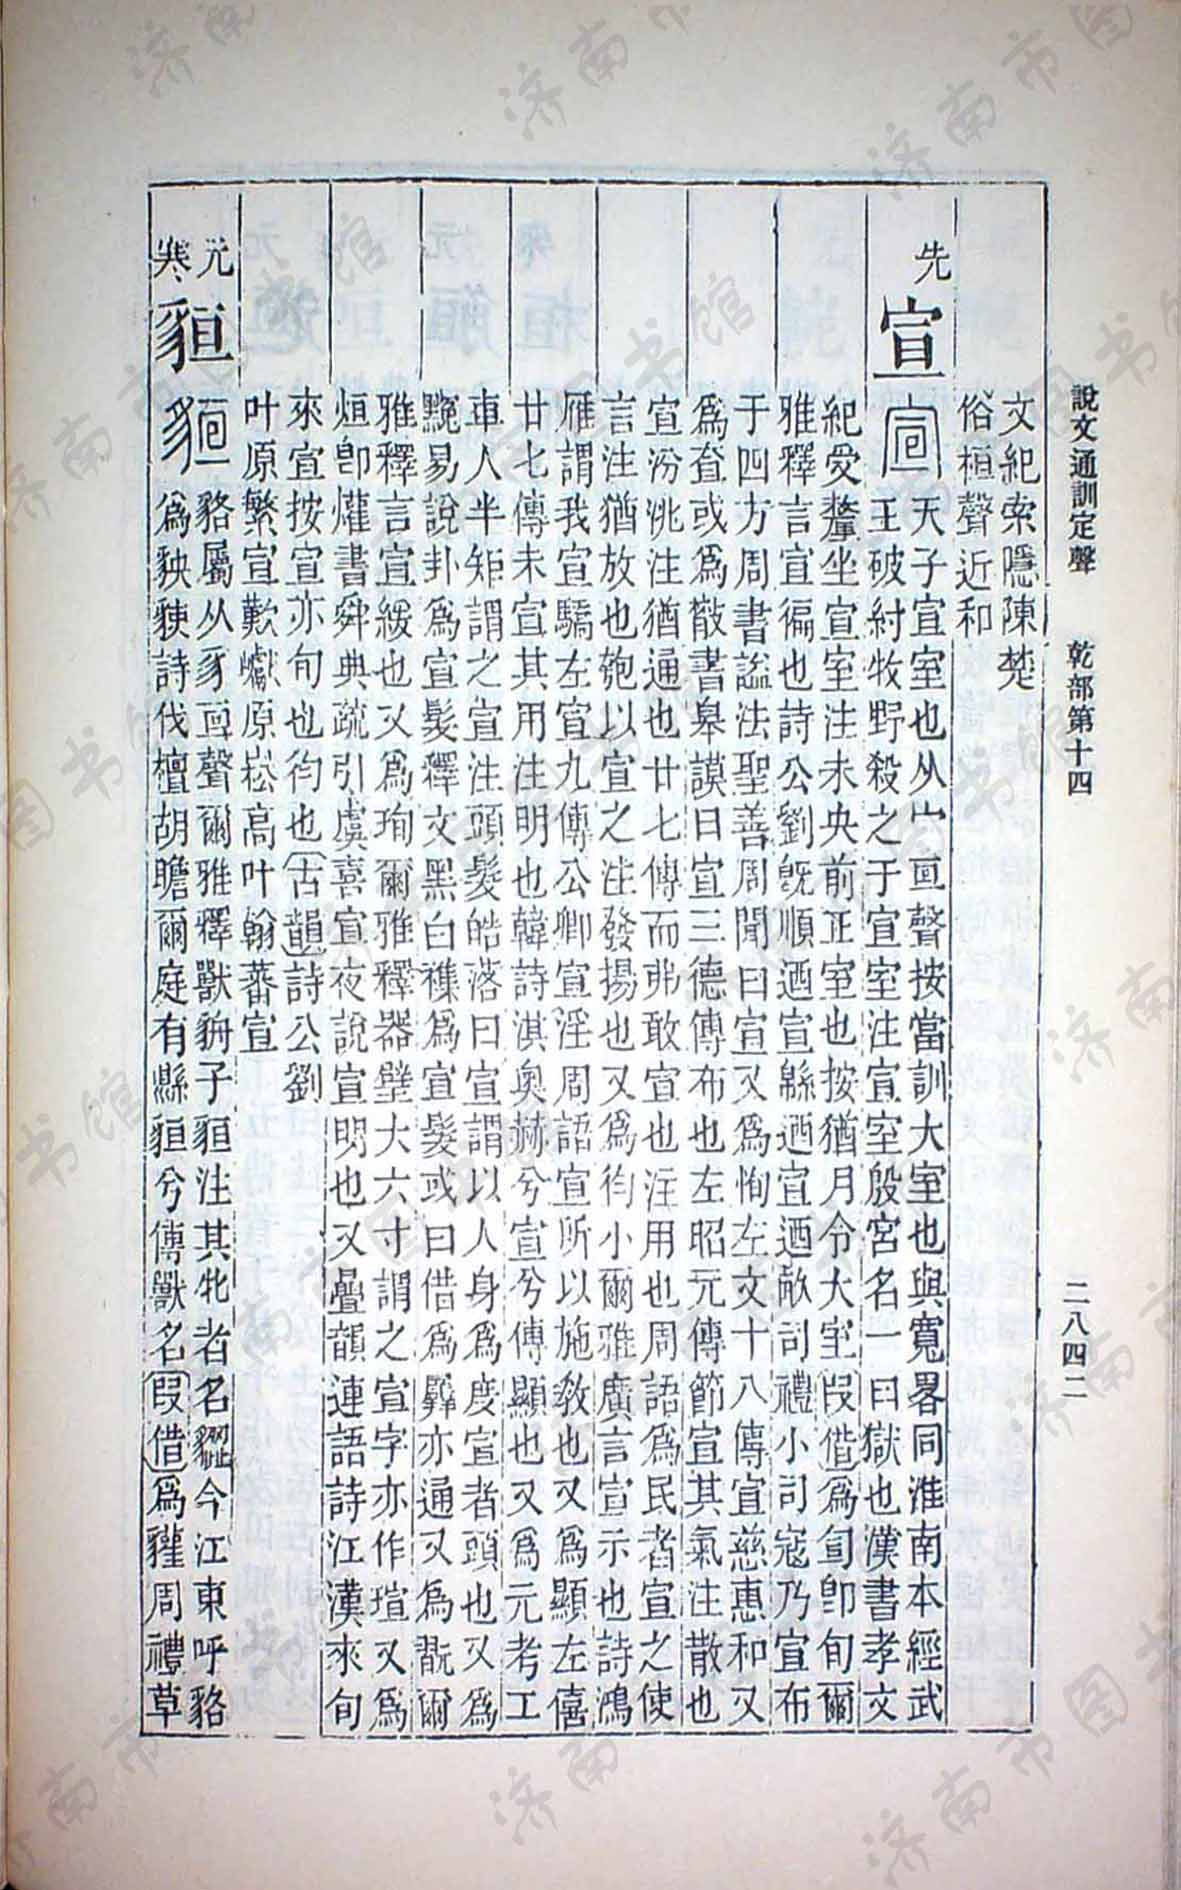 說文通訓定聲　乾部第十四　二八四二
文紀索隱陳楚
俗桓聲近和
先
宣
天子宣室也从宀亘聲按當訓大室也與寬畧同淮南本經武
王破紂牧野殺之于宣室注宣室殷宮名一曰獄也漢書孝文
紀受釐坐宣室注未央前正室也按猶月令大室叚借爲旬卽旬爾
雅釋言宣徧也詩公劉旣順迺宣緜迺宣迺畝司禮小司寇乃宣布
于四方周書謚法聖善周聞曰宣又爲恂左文十八傳宣慈惠和又
爲亘或爲散書皋謨日宣三德傳布也左昭元傳節宣其氣注散也
宣汾洮注猶通也廿七傳而弗敢宣也注用也周語爲民者宣之使
言注猶放也匏以宣之注發揚也又爲衍小爾雅廣言宣示也詩鴻
雁謂我宣驕左宣九傳公卿宣淫周語宣所以施敎也又爲顯左僖
廿七傳未宣其用注明也韓詩淇奧赫兮宣兮傳顯也又爲元考工
車人半矩謂之宣注頭髮皓落曰宣謂以人身爲度宣者頭也又爲
䩊易說卦爲宣髮釋文黑白襍爲宣髮或曰借爲鬗亦通又爲翫爾
雅釋言宣緩也又爲珣爾雅釋器璧大六寸謂之宣字亦作瑄又爲
烜卽爟書舜典疏引虞喜宣夜說宣明也又疊韻連語詩江漢來旬
來宣按宣亦旬也徇也古韻詩公劉
叶原繁宣歎巘原崧高叶翰蕃宣
元
寒
貆
貉屬从豸亘聲爾雅釋獸貈子貆注其牝者名貗今江東呼貉
爲䝟𧳅詩伐檀胡瞻爾庭有縣貆兮傳獸名叚借爲貛周禮草